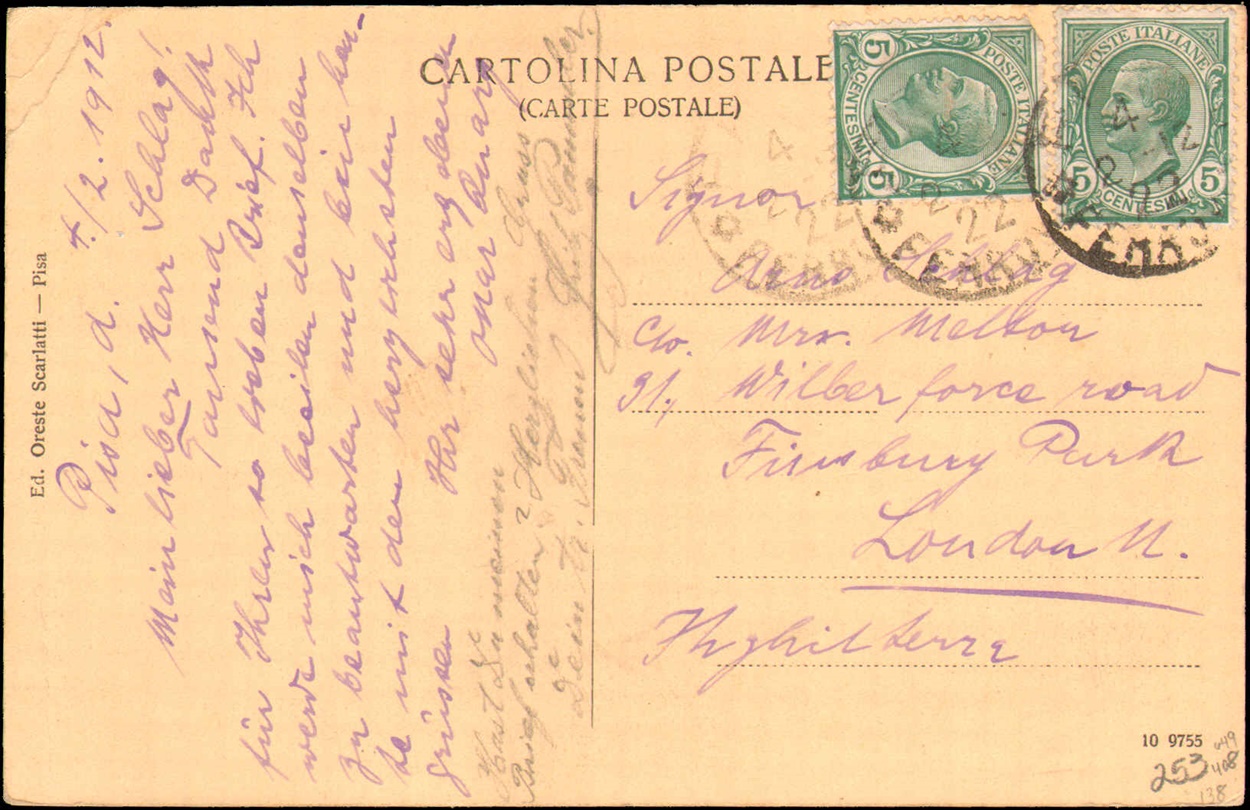 CARTOLINA POSTALE
(CARTE POSTALE)
Ed. Oreste Scarlatti — Pisa
Pisa, d. 4./2. 1912.
Mein lieber Herr Schlag!
Tausend Dank
für Ihren so lieben Brief. Ich
werde mich beeilen denselben
zu beantworten und bin heu-
te mit den herzlichsten
Grüssen Ihr sehr ergebener
Hast Du meinen
Brief erhalten? Herzlichen Gruss
dein tr. Freund Fritz
POSTE ITALIANE
5 CENTESIMI 5
POSTE ITALIANE
5 CENTESIMI 5
4
22
FERROV
Signor
Arno Schlag
c/o. Mrs. Melton
31, Wilberforce road
Finsbury Park
London N.
Inghilterra
10 9755
253
649
408
138